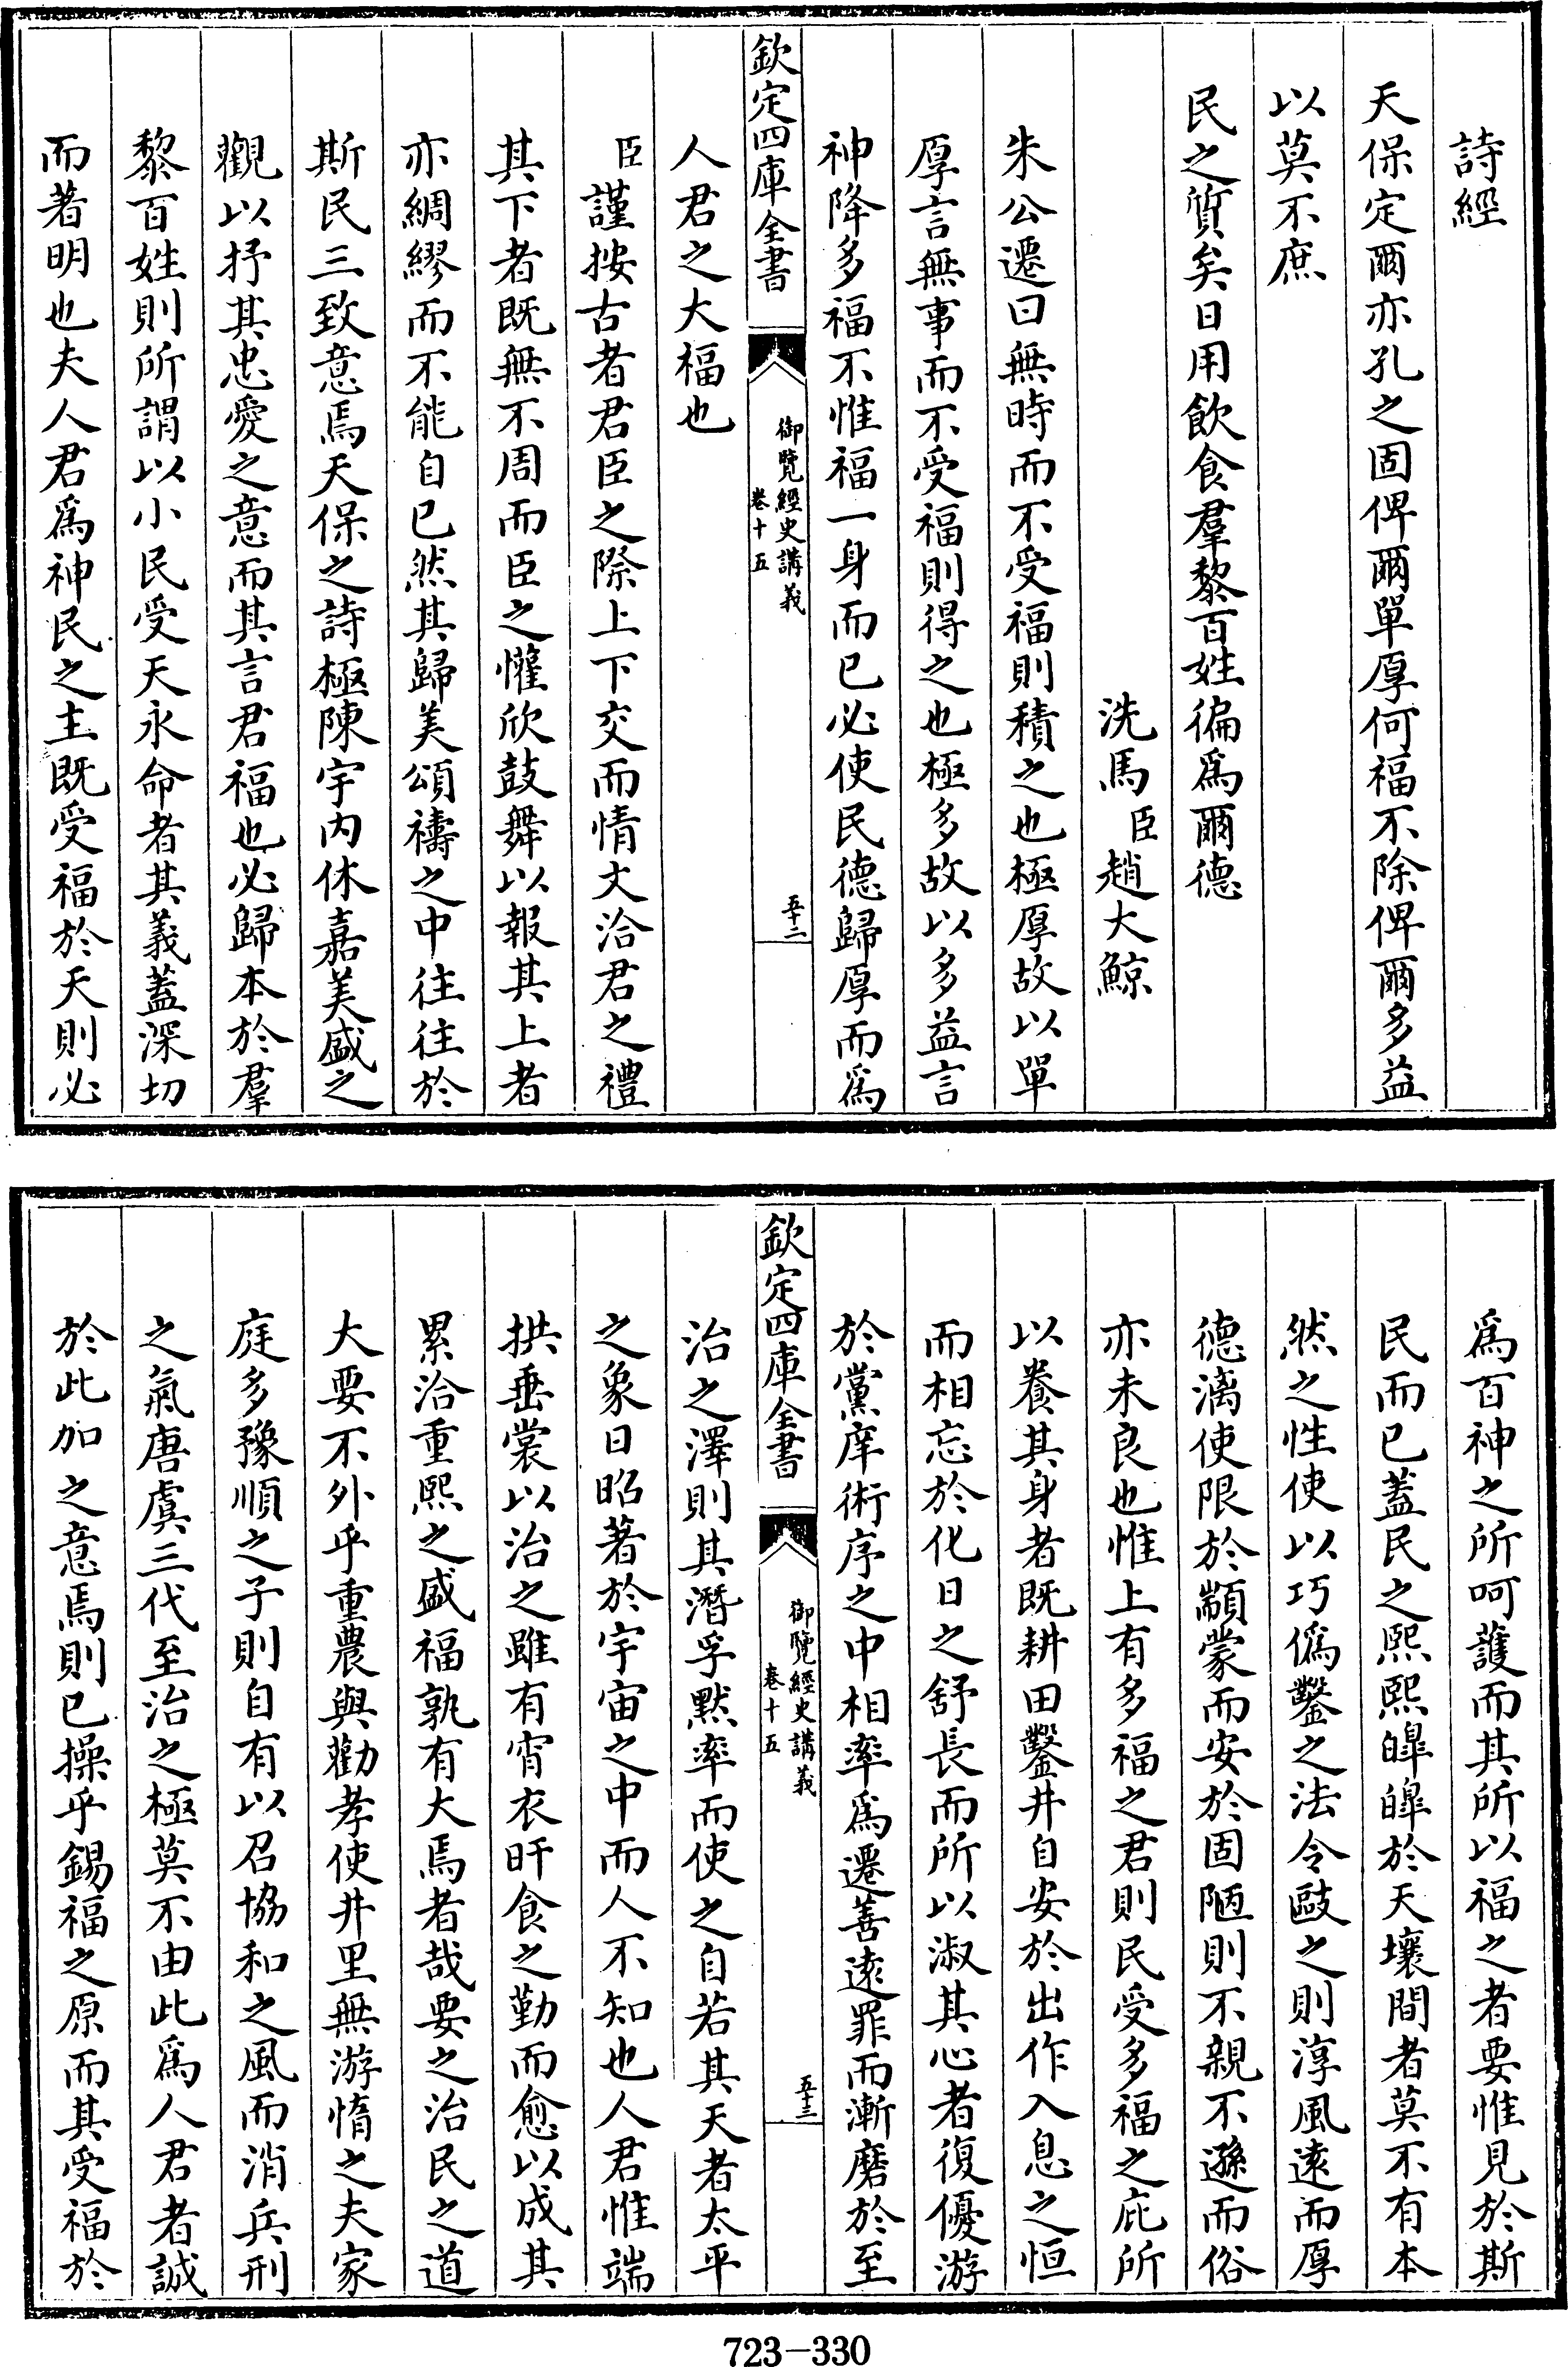 詩經
天保定爾亦孔之固俾爾單厚何福不除俾爾多益
以莫不庶
民之質矣日用飲食羣黎百姓徧爲爾德
洗馬臣趙大鯨
朱公遷曰無時而不受福則積之也極厚故以單
厚言無事而不受福則得之也極多故以多益言
神降多福不惟福一身而已必使民德歸厚而爲
欽定四庫全書
御覽經史講義
卷十五
五十二
人君之大福也
臣謹按古者君臣之際上下交而情文洽君之禮
其下者既無不周而臣之懽欣鼓舞以報其上者
亦綢繆而不能自已然其歸美頌禱之中往往於
斯民三致意焉天保之詩極陳宇内休嘉美盛之
觀以抒其忠愛之意而其言君福也必歸本於羣
黎百姓則所謂以小民受天永命者其義蓋深切
而著明也夫人君爲神民之主既受福於天則必
爲百神之所呵護而其所以福之者要惟見於斯
民而已蓋民之熙熙皥皥於天壤間者莫不有本
然之性使以巧僞鑿之法令敺之則淳風遠而厚
德漓使限於顓蒙而安於固陋則不親不遜而俗
亦未良也惟上有多福之君則民受多福之庇所
以養其身者既耕田鑿井自安於出作入息之恒
而相忘於化日之舒長而所以淑其心者復優游
於黨庠術序之中相率爲遷善遠罪而漸磨於至
欽定四庫全書
御覽經史講義
卷十五
五十三
治之澤則其潛孚默率而使之自若其天者太平
之象日昭著於宇宙之中而人不知也人君惟端
拱垂裳以治之雖有宵衣旰食之勤而愈以成其
累洽重熙之盛福孰有大焉者哉要之治民之道
大要不外乎重農與勸孝使井里無游惰之夫家
庭多豫順之子則自有以召協和之風而消兵刑
之氣唐虞三代至治之極莫不由此爲人君者誠
於此加之意焉則已操乎錫福之原而其受福於
723-330